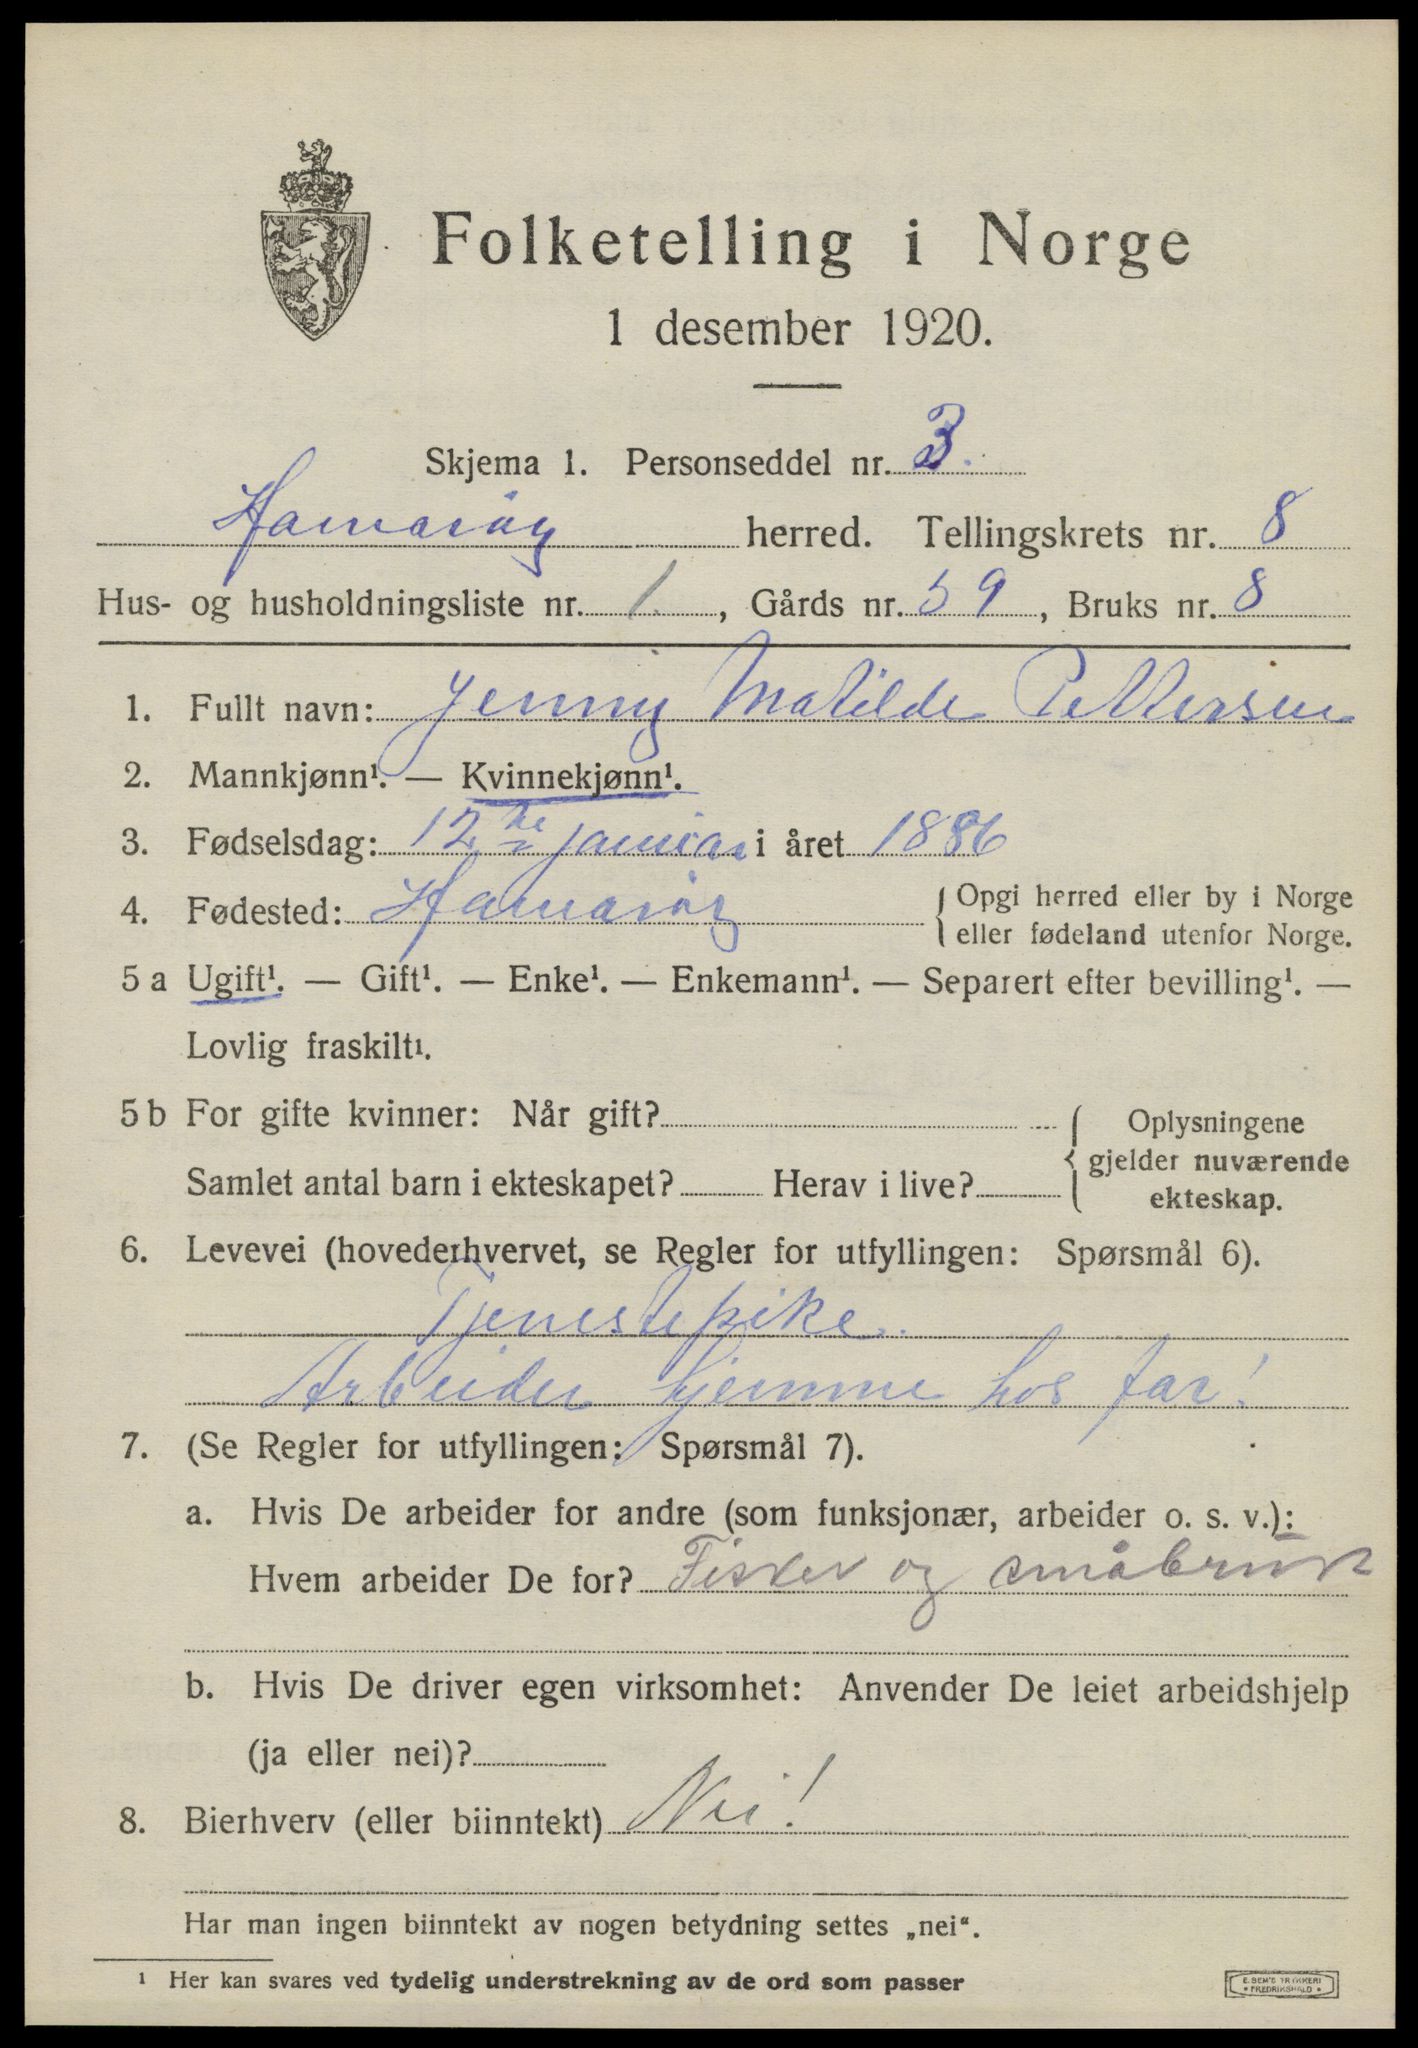 Folketelling i Norge
1 desember 1920.
Skjema 1. Personseddel nr. 3.
Hamarøy herred. Tellingskrets nr. 8
Hus- og husholdningsliste nr. 1. , Gårds nr. 59 , Bruks nr. 8
1. Fullt navn: Jenny Matilde Pettersen
2. Mannkjønn¹. — Kvinnekjønn¹.
3. Fødselsdag: 12te januar i året 1886
4. Fødested: Hamarøy
{ Opgi herred eller by i Norge
eller fødeland utenfor Norge.
5 a Ugift¹. — Gift¹. — Enke¹. — Enkemann¹. — Separert efter bevilling¹. —
Lovlig fraskilt¹.
5 b For gifte kvinner: Når gift?
Samlet antal barn i ekteskapet? Herav i live?
{ Oplysningene
gjelder nuværende
ekteskap.
6. Levevei (hovederhvervet, se Regler for utfyllingen: Spørsmål 6).
Tjenestepike.
Arbeider hjemme hos far!
7. (Se Regler for utfyllingen: Spørsmål 7).
a. Hvis De arbeider for andre (som funksjonær, arbeider o. s. v.):
Hvem arbeider De for? Fisker og småbruk
b. Hvis De driver egen virksomhet: Anvender De leiet arbeidshjelp
(ja eller nei)?
8. Bierhverv (eller biinntekt) Nei!
Har man ingen biinntekt av nogen betydning settes „nei“.
¹ Her kan svares ved tydelig understrekning av de ord som passer
E. SEM'S TRYKKERI
* FREDRIKSHALD *